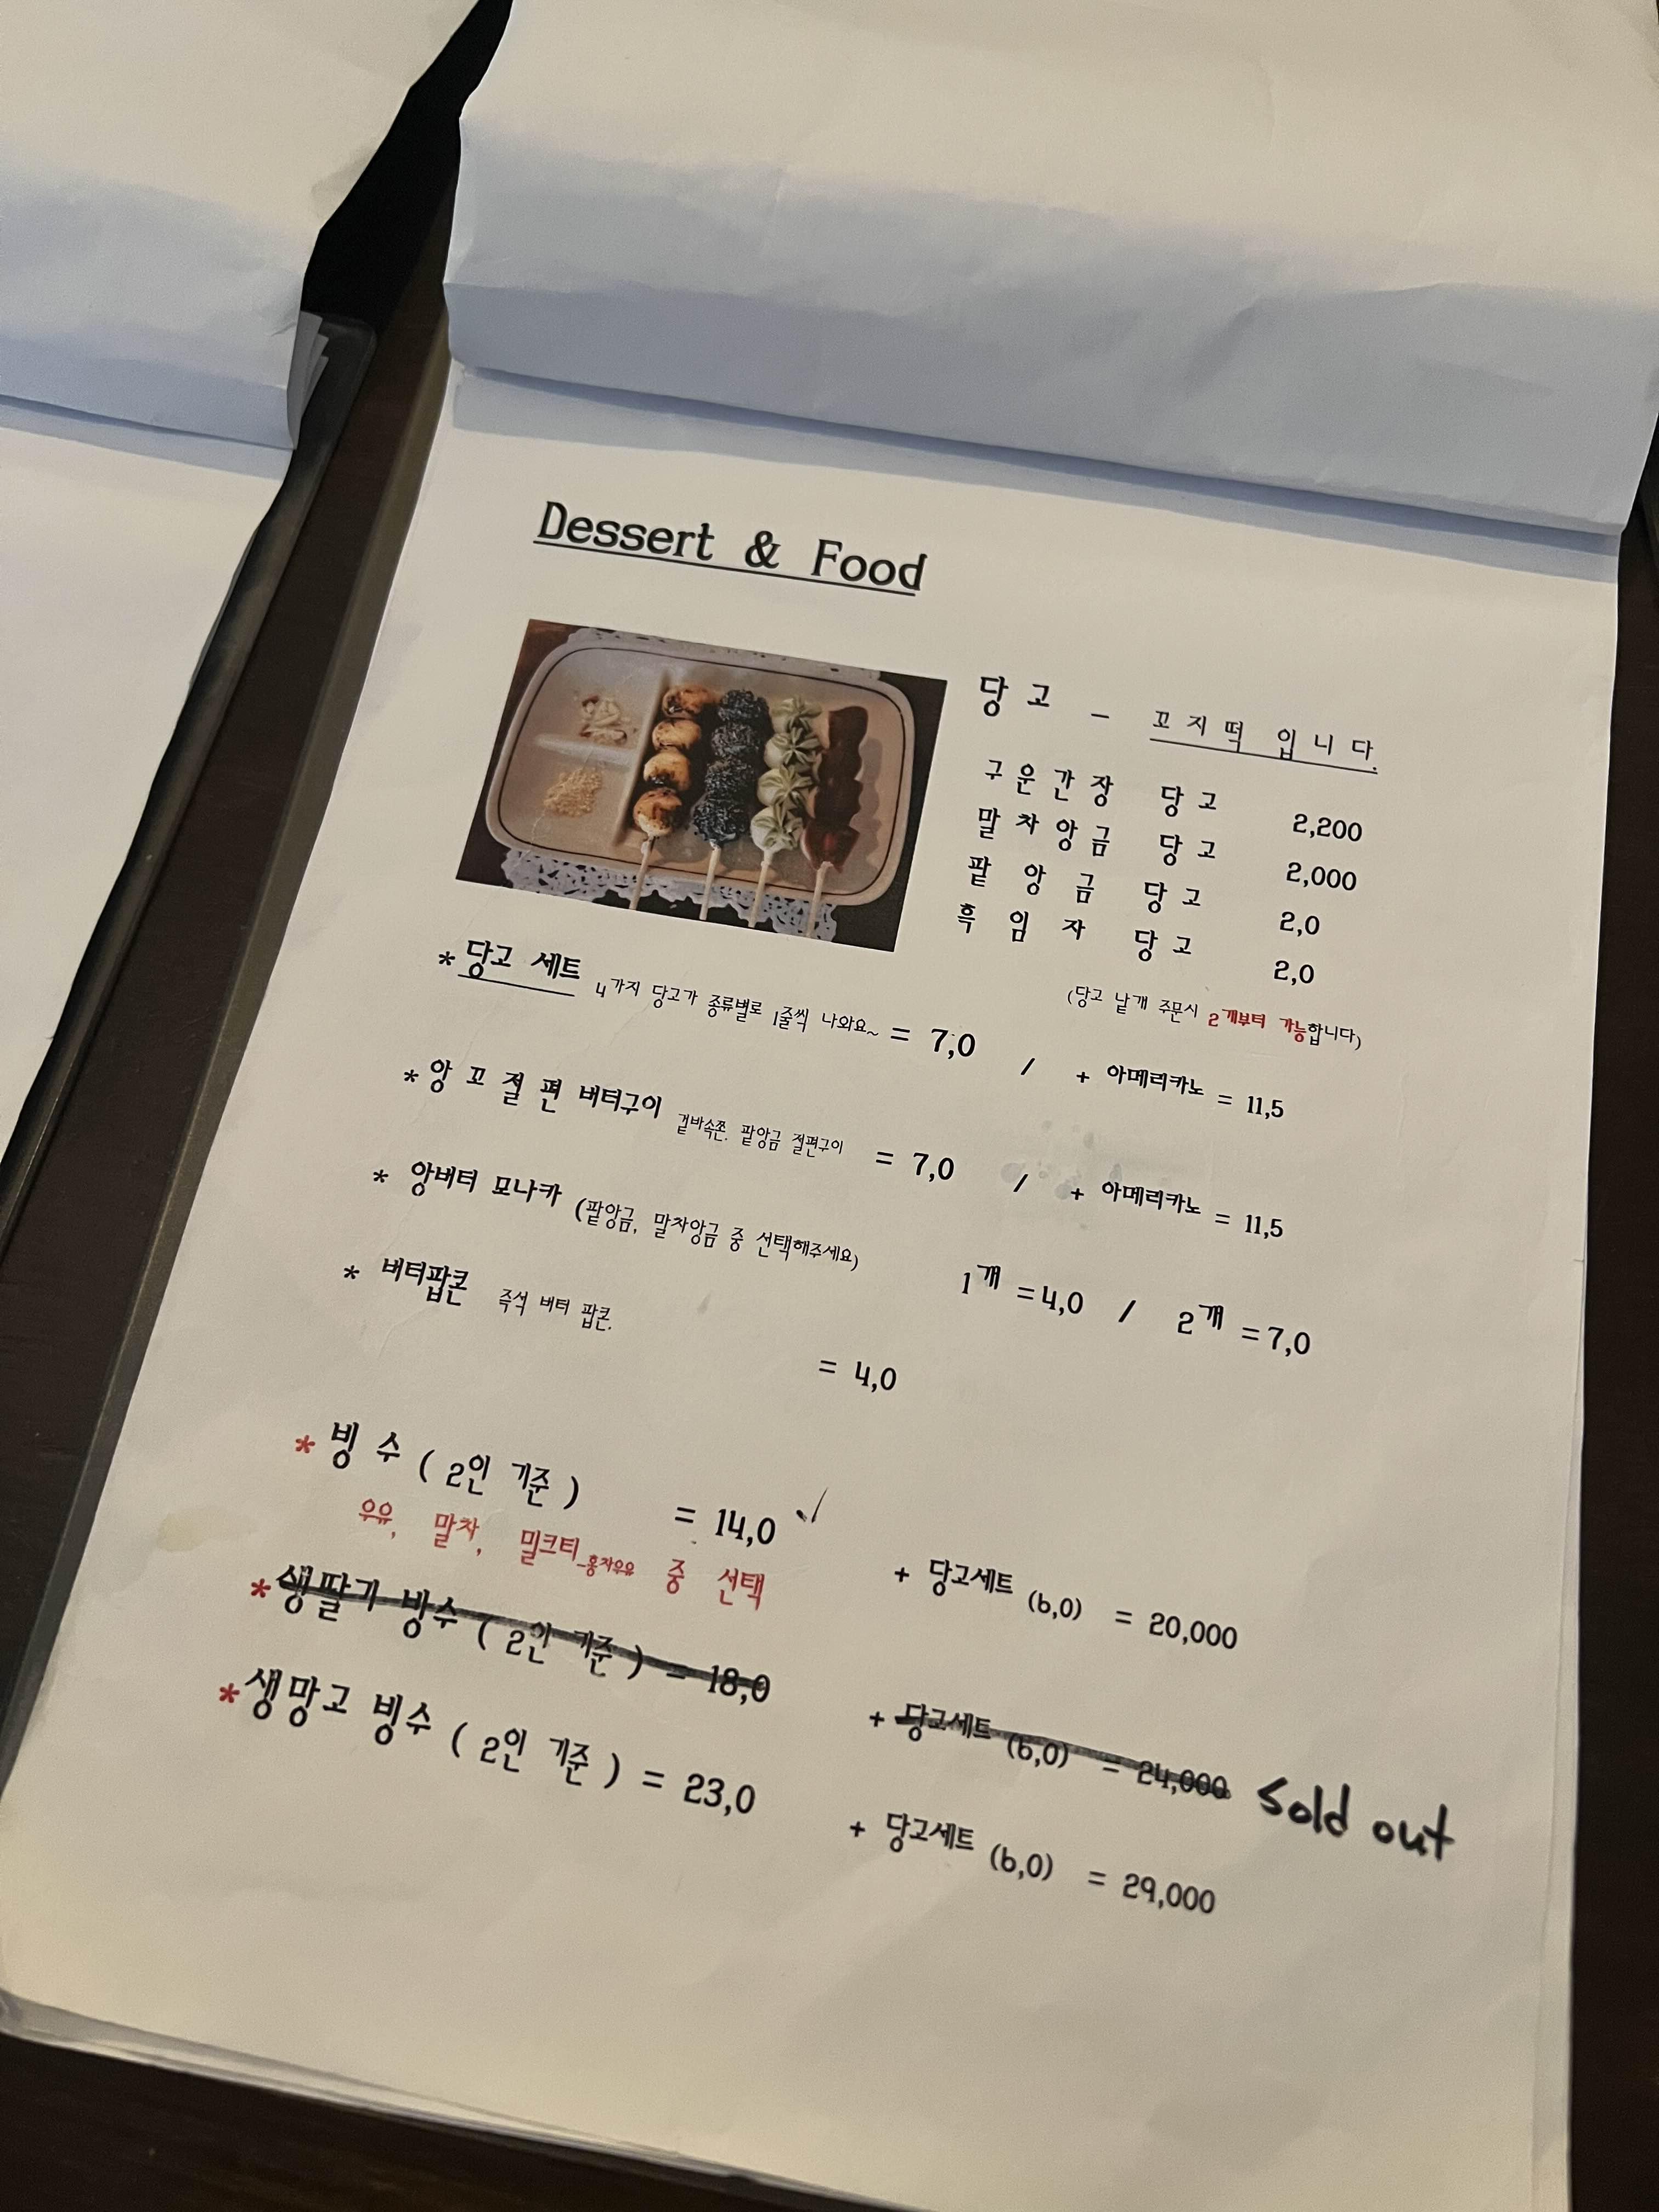 Dessert & Food
당고 - 꼬지떡 입니다.
구운간장 당고 2,200
말차앙금 당고 2,000
팥 앙 금 당고 2,0
흑 임 자 당고 2,0
(당고 낱개 주문시 2개부터 가능합니다)
*당고 세트 4가지 당고가 종류별로 1줄씩 나와요~ = 7,0 / + 아메리카노 = 11,5
* 앙 꼬 절 편 버터구이 겉바속쫀. 팥앙금 절편구이 = 7,0 / + 아메리카노 = 11,5
* 앙버터 모나카 (팥앙금, 말차앙금 중 선택해주세요) 1개 =4,0 / 2개 =7,0
* 버터팝콘 즉석 버터 팝콘. = 4,0
* 빙 수 ( 2인 기준 ) = 14,0 ✓ + 당고세트 (6,0) = 20,000
우유, 말차, 밀크티_홍차우유 중 선택
*생딸기 빙수 ( 2인 기준 ) = 18,0 + 당고세트 (6,0) = 24,000 Sold out
*생망고 빙수 ( 2인 기준 ) = 23,0 + 당고세트 (6,0) = 29,000